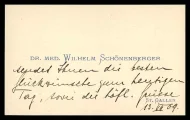 DR. MED. WILHELM SCHÖNENBERGER
sendet Ihnen die besten
Glückwünsche zum heutigen
Tag, sowie die höfl. Grüsse
ST. GALLEN
13. VI 39.